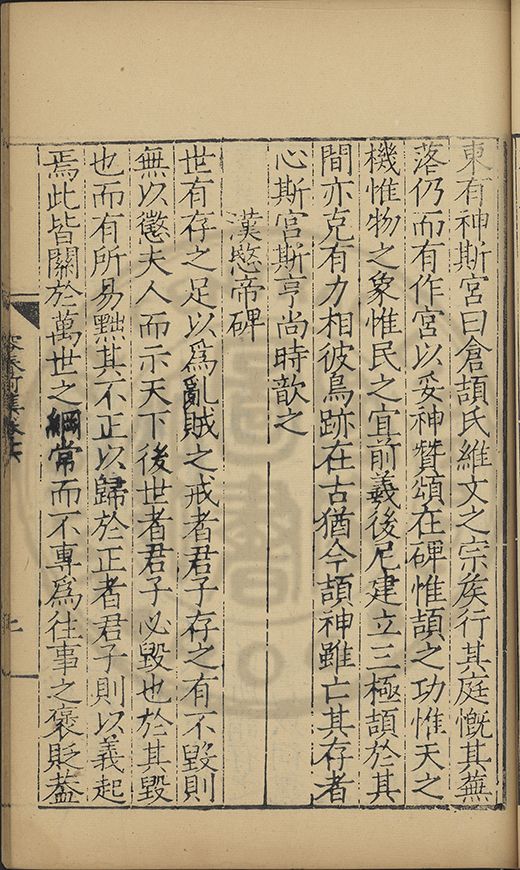 東有神斯宮曰倉頡氏維文之宗矦行其庭慨其蕪
落仍而有作宮以妥神贊頌在碑惟頡之功惟天之
機惟物之象惟民之宜前羲後尼建立三極頡於其
間亦克有力相彼鳥跡在古猶今頡神雖亡其存者
心斯宮斯亨尚時歆之
漢愍帝碑
世有存之足以爲亂賊之戒者君子存之有不毀則
無以懲夫人而示天下後世者君子必毀也於其毀
也而有所易黜其不正以歸於正者君子則以義起
焉此皆關於萬世之綱常而不專爲往事之褒貶葢